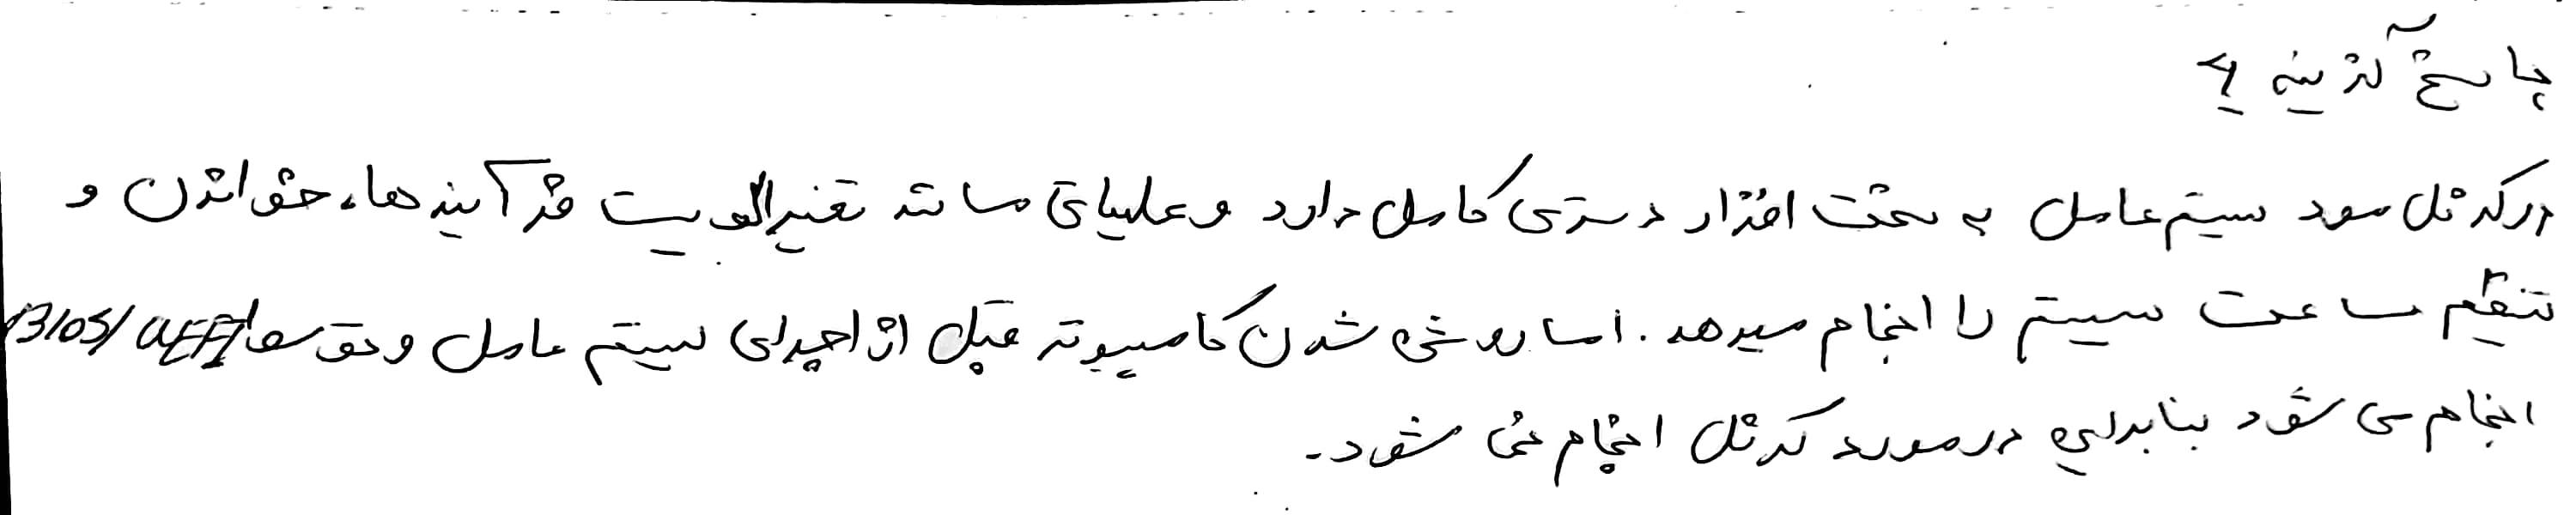 پاسخ گزینه ۴
در کرنل مود سیستم عامل به سخت افزار دسترسی کامل دارد و عملیاتی مانند تغییر الویت فرآیندها، خواندن و
تنظیم ساعت سیستم را انجام میدهد. اما روشن شدن کامپیوتر قبل از اجرای سیستم عامل و توسط BIOS/UEFI
انجام می شود بنابراین در مورد کرنل انجام نمی شود.